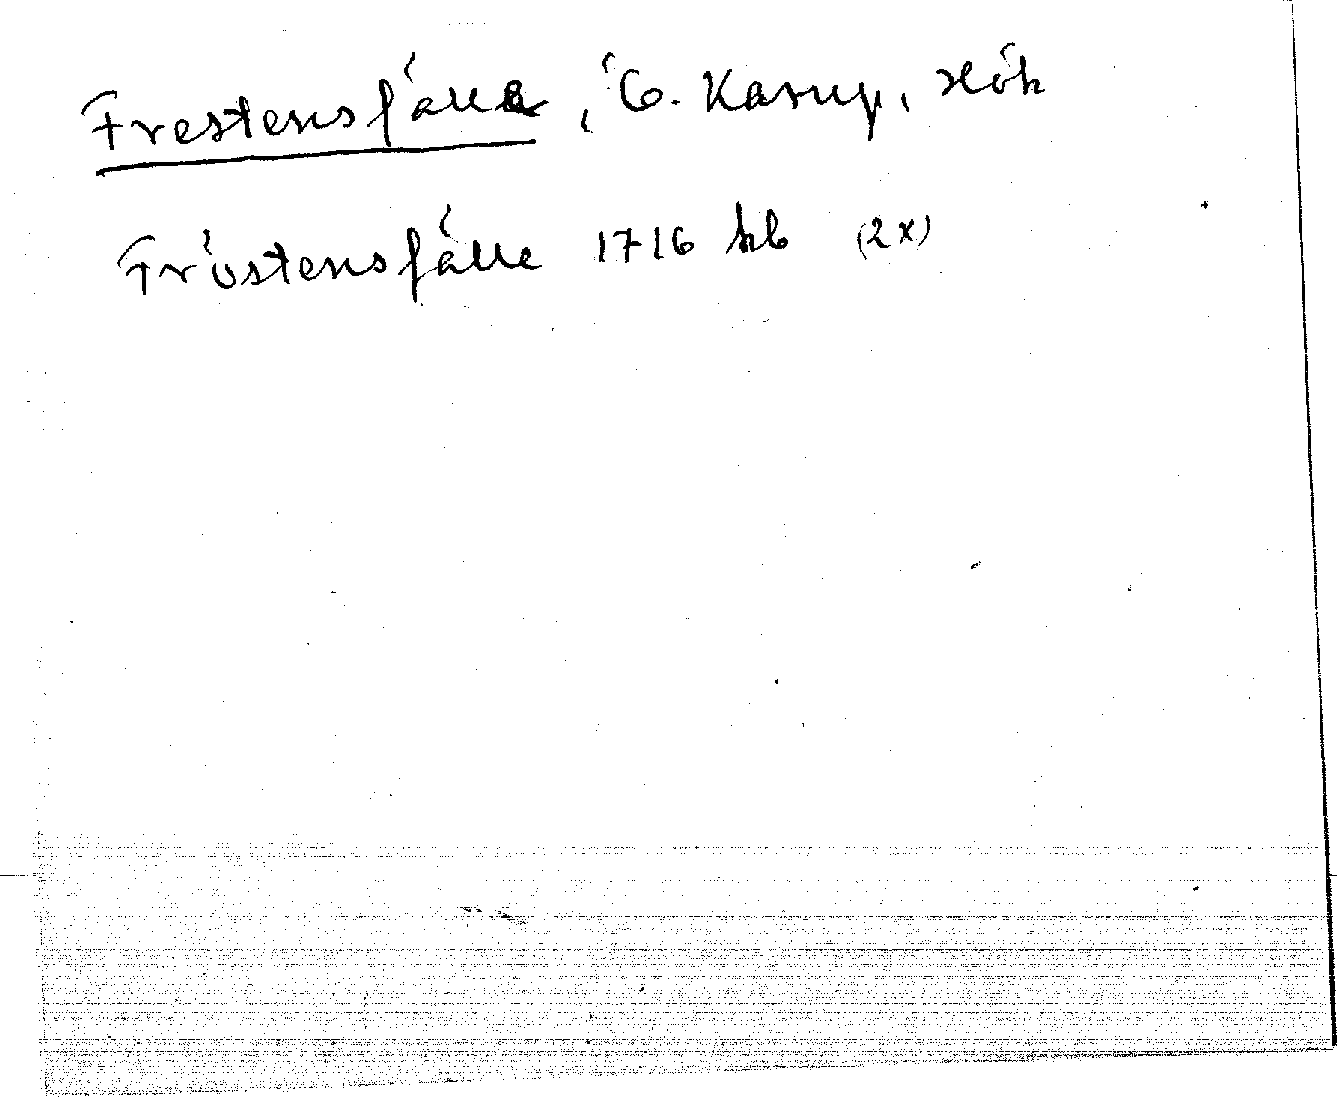 Frestensfälle, Ö. Karup, Höks
Fröstensfälle 1716 kb (2x)